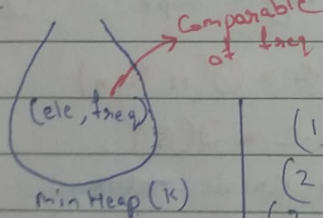 Comparable
of freq
(ele, freq)
(1
(2
min Heap (K)